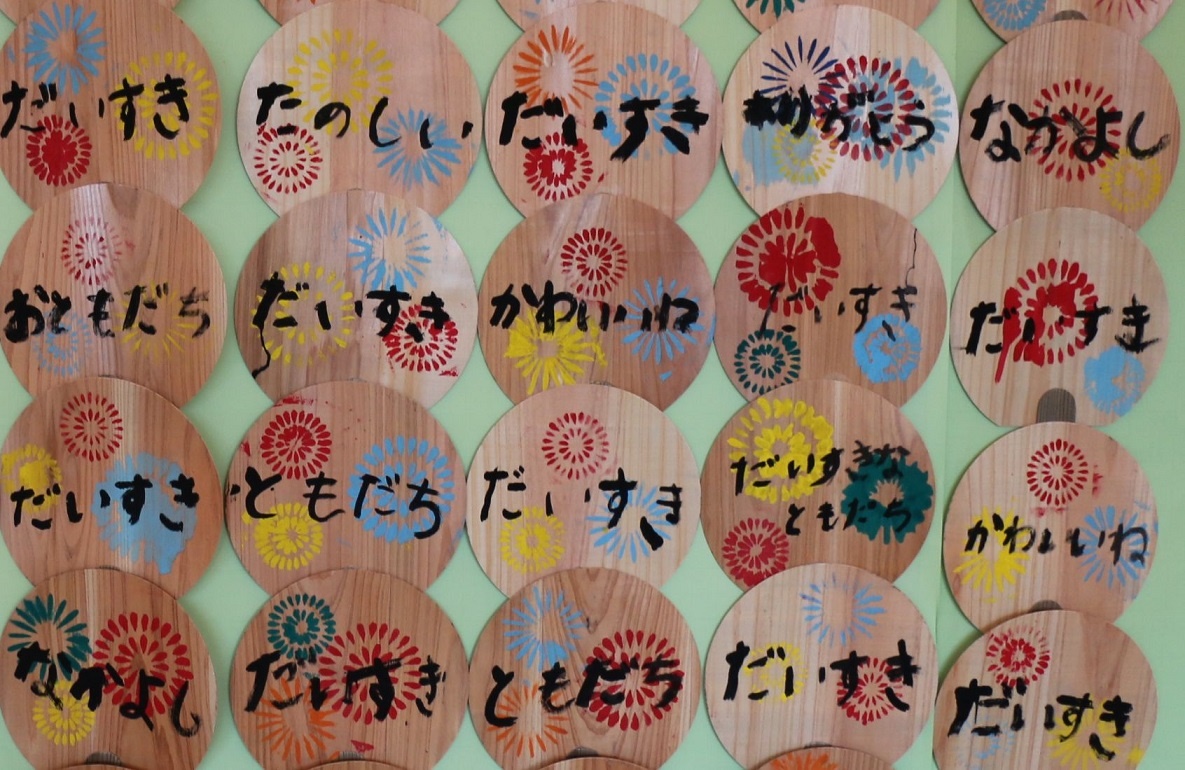 だいすき
たのしい
だいすき
ありがとう
なかよし
おともだち
だいすき
かわいいね
だいすき
だいすき
だいすき
ともだち
だいすき
だいすきな
ともだち
かわいいね
なかよし
だいすき
ともだち
だいすき
だいすき